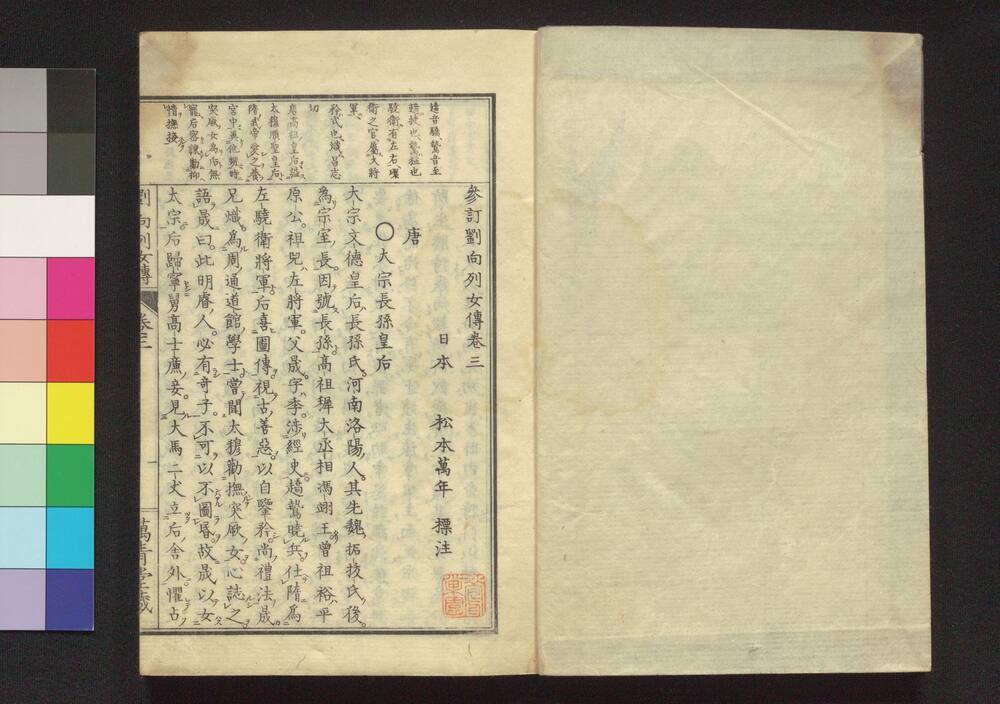 參訂劉向列女傳卷三
日本 松本萬年 標注
唐
〇大宗長孫皇后
大宗文德皇后長孫氏。河南洛陽人。其先魏拓拔氏後。
為宗室長。因號長孫。高祖稺大丞相馮翊王。曾祖裕平
原公。祖兕左將軍。父晟。字季。涉經史。趫鷙曉兵。仕隋為
左驍衛將軍。后喜圖傳。視古善惡。以自鑒。矜尚禮法。晟
兄熾。為周通道館學士。嘗聞太穆勸撫突厥女。心誌之。
語晟曰。此明睿人。必有奇子。不可以不圖昏。故晟以女
太宗。后歸寧。舅高士廉妾。見大馬二丈立后舍外。懼占
趫音驕鷙音至
趫捷也鷙猛也
驍衛有左右環
衛之官屬大將
軍
矜式也熾昌志
切
唐高祖皇后謚
太穆順聖皇后
隋武帝愛之養
宮中異他甥時
突厥女為后無
寵后密諫勸抑
情撫接
劉向列女傳
卷三
一
萬青堂藏